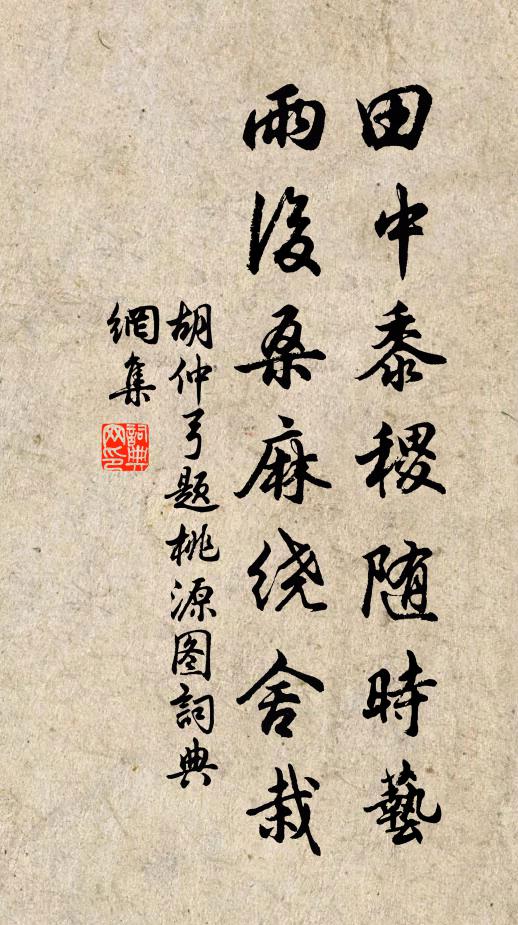 田中黍稷随時藝
雨後桑麻绕舍栽
胡仲弓题桃源图詞典
網集
詞典網印